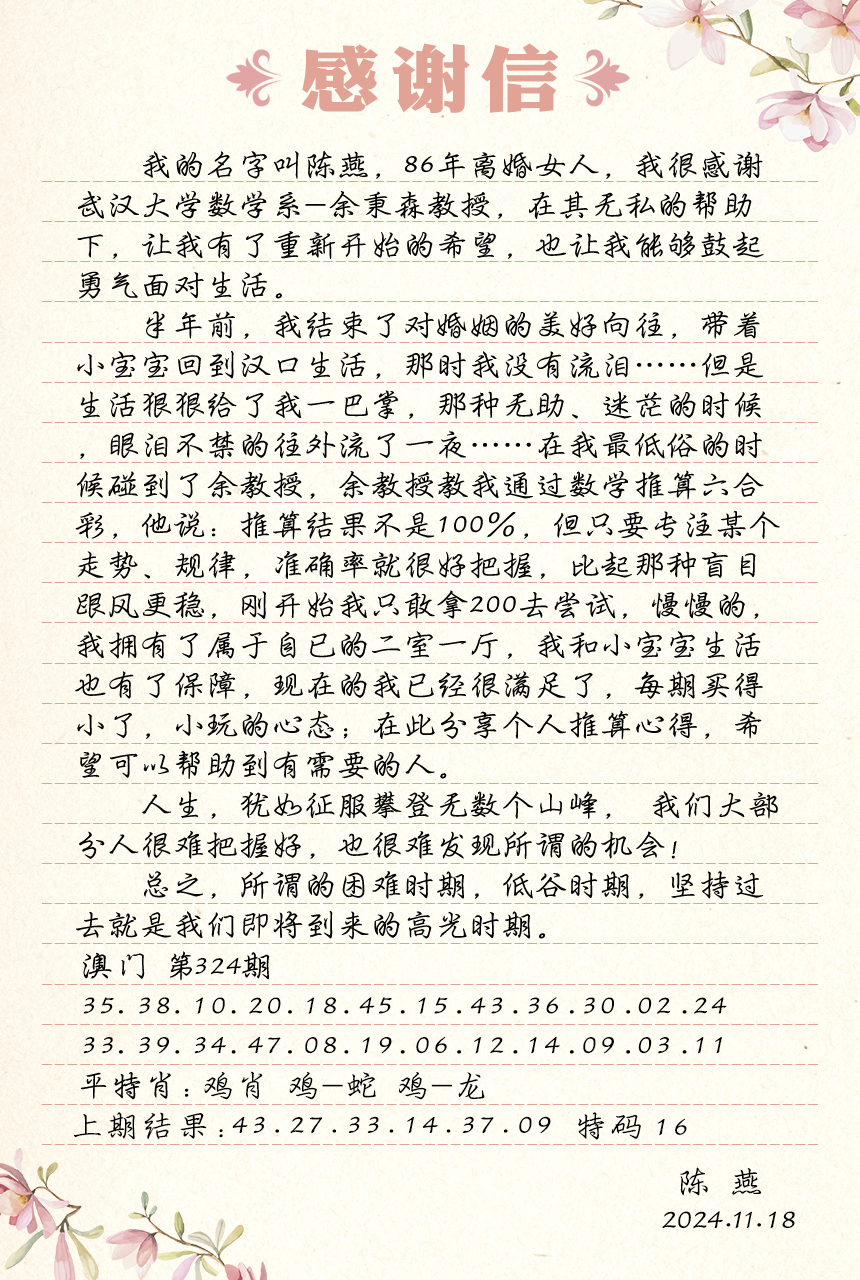 感谢信
我的名字叫陈燕，86年离婚女人，我很感谢
武汉大学数学系—余秉森教授，在其无私的帮助
下，让我有了重新开始的希望，也让我能够鼓起
勇气面对生活。
半年前，我结束了对婚姻的美好向往，带着
小宝宝回到汉口生活，那时我没有流泪……但是
生活狠狠给了我一巴掌，那种无助、迷茫的时候
，眼泪不禁的往外流了一夜……在我最低俗的时
候碰到了余教授，余教授教我通过数学推算六合
彩，他说：推算结果不是100%，但只要专注某个
走势、规律，准确率就很好把握，比起那种盲目
跟风更稳，刚开始我只敢拿200去尝试，慢慢的，
我拥有了属于自已的二室一厅，我和小宝宝生活
也有了保障，现在的我已经很满足了，每期买得
小了，小玩的心态；在此分享个人推算心得，希
望可以帮助到有需要的人。
人生，犹如征服攀登无数个山峰， 我们大部
分人很难把握好，也很难发现所谓的机会！
总之，所谓的困难时期，低谷时期，坚持过
去就是我们即将到来的高光时期。
澳门 第324期
35.38.10.20.18.45.15.43.36.30.02.24
33.39.34.47.08.19.06.12.14.09.03.11
平特肖：鸡肖 鸡—蛇 鸡—龙
上期结果：43.27.33.14.37.09 特码 16
陈 燕
2024.11.18